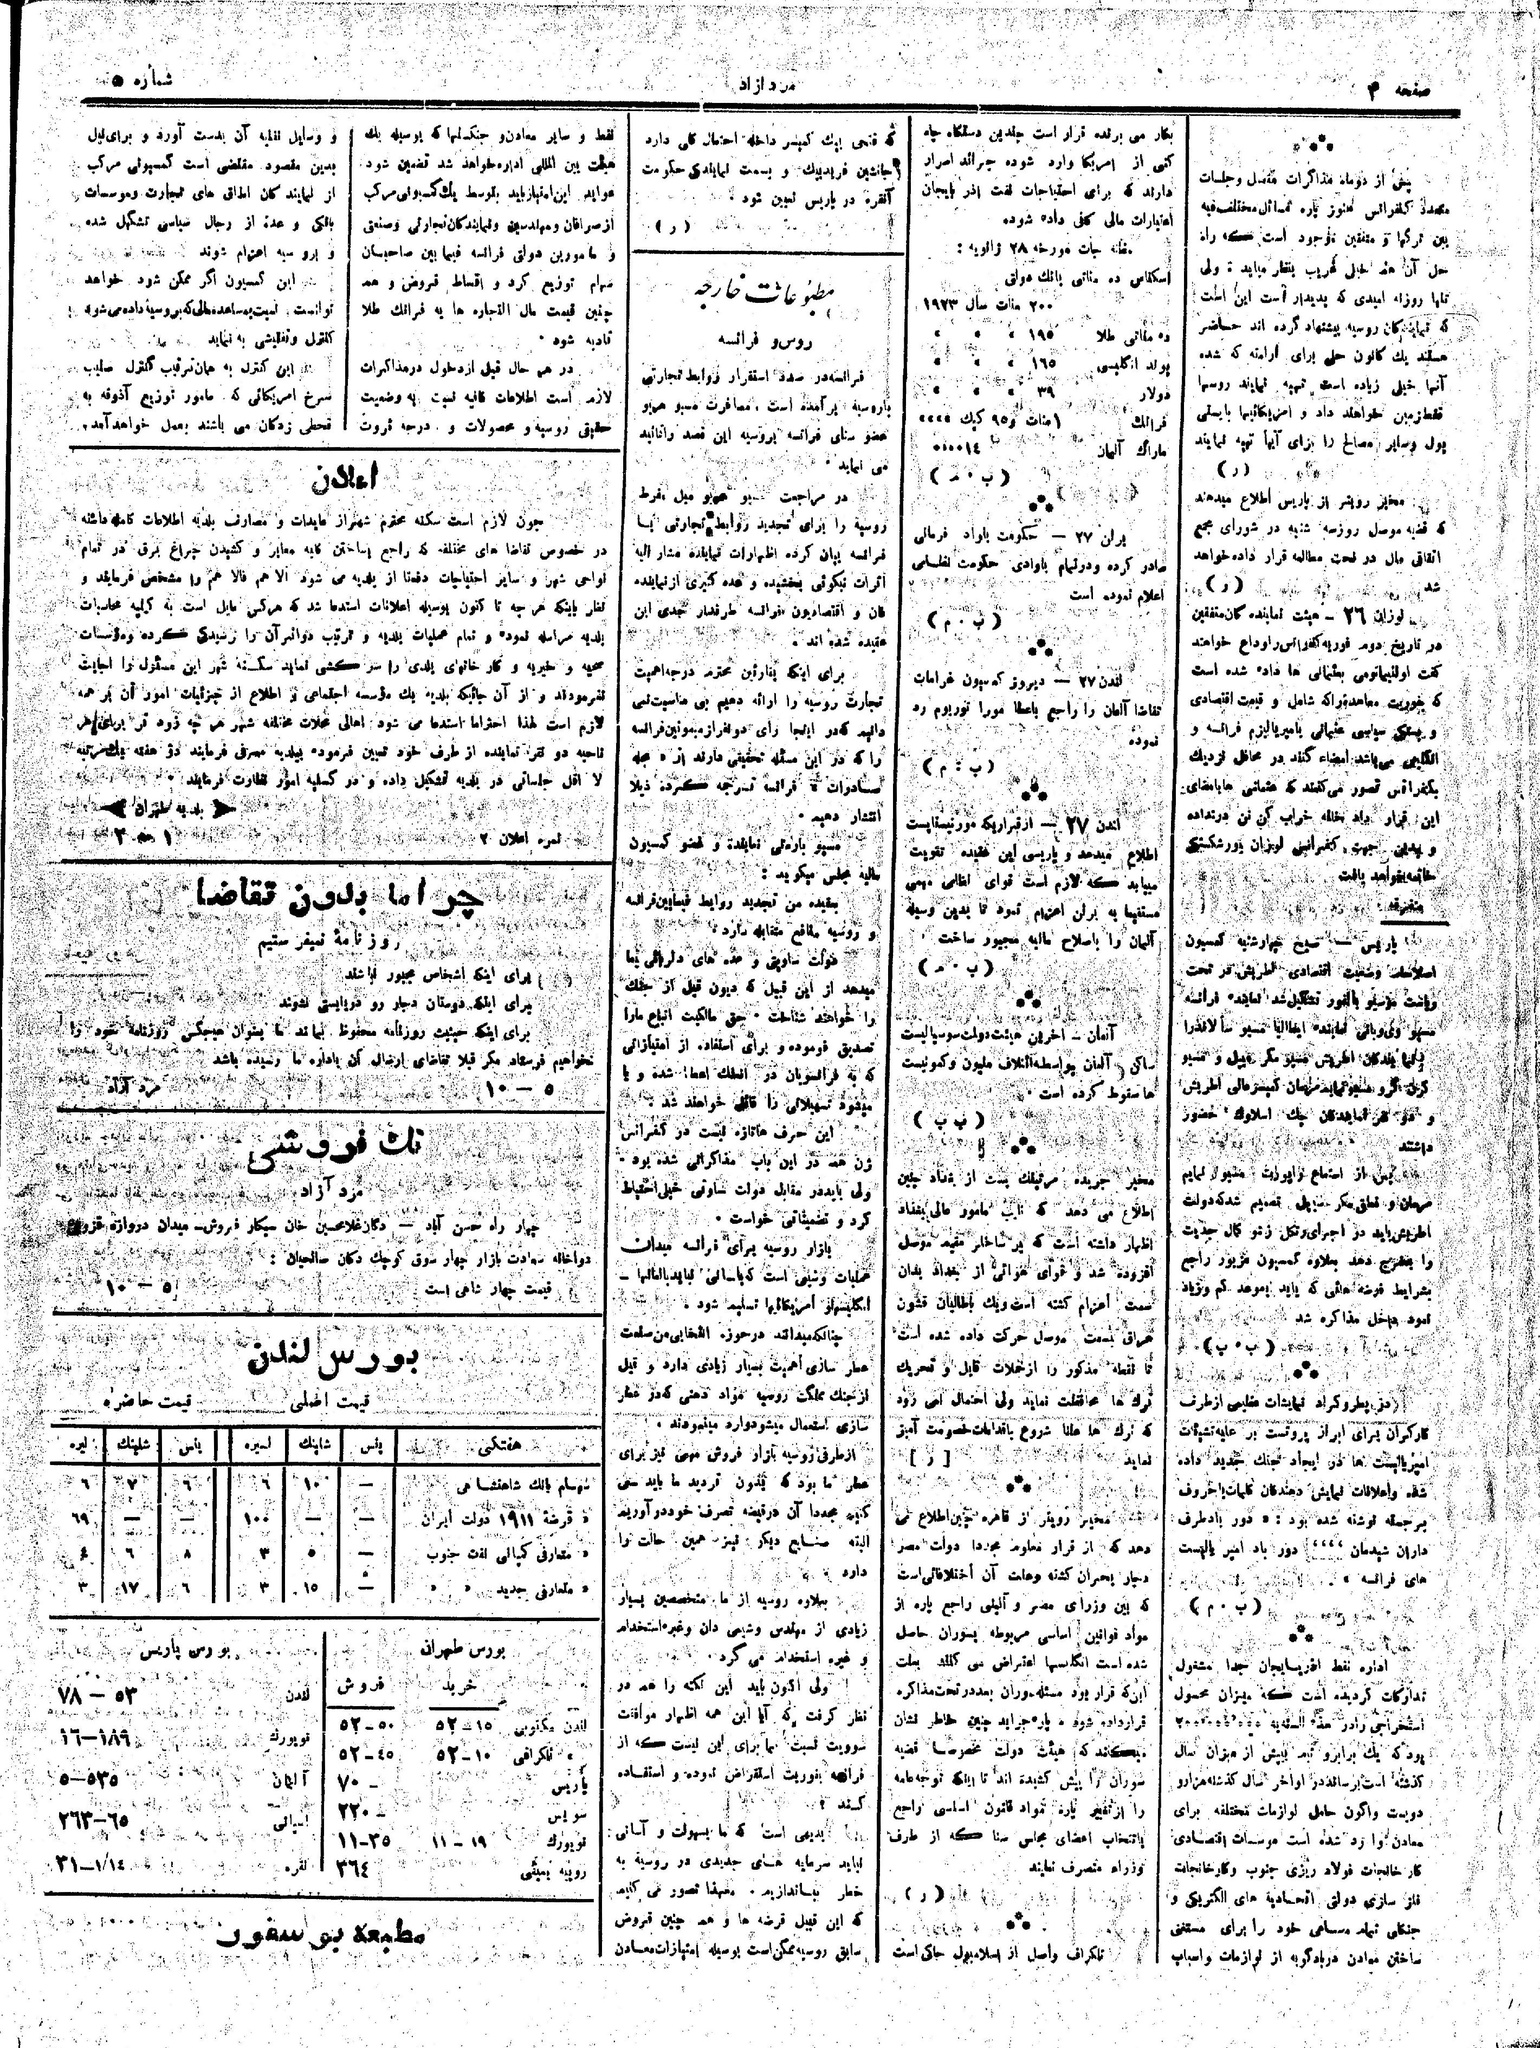 صفحه ۴
مرد آزاد
شماره ۵
پس از دوماه مذاکرات مفصل و جلسات
متعدد کنفرانس هنوز پاره مسائل مختلف فیه
بین ترکها و متفقین موجود است که راه
حل آن هم خیلی غریب بنظر میاید ؛ ولی
تنها روزنه امیدی که پدیدار است این است
که نمایندگان روسیه پیشنهاد کرده اند حاضر
هستند یک کانون ملی برای ارامنه که شده
آنها خیلی زیاده است تهیه نمایند روسها
فقط زمین خواهند داد و امریکائیها بایستی
پول و سایر مصالح را برای آنها تهیه نمایند
( ر )
مخبر رویتر از پاریس اطلاع میدهد
که قضیه موصل روز سه شنبه در شورای مجمع
اتفاق ملل در تحت مطالعه قرار داده خواهد
شد ( ر )
لوزان ۲۶ - هیئت نماینده کان متفقین
در تاریخ دوم فوریه کنفرانس را وداع خواهند
گفت اولتیماتومی بعثمانی ها داده شده است
که بفوریت معاهده را که شامل و قیمت اقتصادی
و سیاسی عثمانی بامپریالیزم فرانسه و
انگلیس می باشد امضاء کنند در محافل نزدیک
بکنفرانس تصور میکنند که عثمانی ها بامضای
این قرار داد خانه خراب کن تن در نداده
و بدین جهت کنفرانس لوزان بورشکستی
خاتمه خواهد یافت
متفرقه
پاریس — صبح چهارشنبه کمسیون
اصلاحات وضعیت اقتصادی اطریش در تحت
ریاست مسیو بالفور تشکیل شد نماینده فرانسه
و دو نفر نمایندگان چک اسلاوک حضور
داشتند
پس از استماع راپورت مسیو زیمر
مان و نطق مگر سپیل تصمیم شد که دولت
اطریش باید در اجرای پرتکل ژنو کمال جدیت
را بخرج دهد بعلاوه کمسیون مزبور راجع
بشرایط قرضه هائی که باید بموعد کم و زیاد
نمود داخل مذاکره شد
( ب . پ )
در پطروگراد نمایشات عظیمی از طرف
کارگران برای ابراز پروتست بر علیه تشبثات
امپریالیست ها در ایجاد جنگ جدید داده
شده و اعلانات نمایش دهندگان کلمات باحروف
برجسته نوشته شده بود : « دور باد طرف
داران شیدمان ،،،، دور باد امپر یالیست
های فرانسه » .
( ب . م )
اداره نفط اذربایجان جدا مشغول
تدارکات گردیده است که میزان محصول
استخراجی را در هذه السنه به ۲۰۰۰۰۰۰۰۰
پود که یک برابر و نیم بیش از میزان سال
گذشته است برساند در اواخر سال گذشته هزار و
دویست واگون حامل لوازمات مختلفه برای
معادن وارد شده است موسسات اقتصادی
کارخانجات فولاد ریزی جنوب و کارخانجات
فلز سازی دولتی اتحادیه های الکتریکی و
جنگلی تمام مساعی خود را برای مستغنی
ساختن معادن در بادکوبه از لوازمات و اسباب
بکار می برنده قرار است چندین دستگاه چاه
کنی از امریکا وارد شوده جرائد اصرار
دارند که برای احتیاجات نفت اذر بایجان
اعتبارات مالی کافی داده شوده
مظنه جات مورخه ۲۸ ژانویه :
اسکناس ده مناتی بانک دولتی
۲۰۰ منات سال ۱۹۲۳
ده مناتی طلا ۱۹۵ » » »
پوند انگلیسی ۱۶۵ » » »
دولار ۳۹ » » »
فرانک ۱منات و ۹۵ کپک »»»»
مارک آلمان ۰،۰۰۱۴
( ب . م )
برلن ۲۷ — حکومت باواد فرمانی
صادر کرده و در تمام باوادی حکومت نظامی
اعلام نموده است
( ب . م )
لندن ۲۷ — دیروز کمسیون غرامات
تقاضای آلمان را راجع باعطا مورا توریوم رد
نموده
( ب . م )
لندن ۲۷ — از قراریکه مورنینگ پست
اطلاع میدهد و پاریس این عقیده تقویت
میباید که لازم است قوای نظامی مهمی
مستقیما به برلن اعزام نمود تا بدین وسیله
آلمان را باصلاح مالیه مجبور ساخت .
( ب . م )
آلمان — اخرین هیئت دولت سوسیالیست
ساکس آلمان بواسطه ائتلاف ملیون و کمونیست
ها سقوط کرده است .
( پ پ )
مخبر جریده مرنینگ پست از بغداد چنین
اطلاع می دهد که نایب مامور عالی بغداد
اظهار داشته است که بر ساخلو مقیم موصل
افزوده شد و قوای هوائی از بغداد بدان
سمت اعزام گشته است و یک باطالیان قشون
عراق بسمت موصل حرکت داده شده است
تا نقطه مذکور را از حملات قبایل و تحریک
ترک ها محافظت نماید ولی احتمال نمی رود
که ترک ها علنا شروع باقدامات خصومت آمیز
نماید [ ر ]
مخبر رویتر از قاهره چنین اطلاع می
دهد که از قرار معلوم مجددا دولت مصر
دچار بحران گشته و علت آن اختلافاتی است
که بین وزرای مصر و آلنبی راجع پاره از
مواد قوانین اساسی مربوطه بسوران حاصل
شده است انگلیسها اعتراض می کنند بعلت
این که قرار بود مسئله سوران بعد در تحت مذاکره
قرار داده شود ، پاره جراید چنین خاطر نشان
میکنند که هیئت دولت مخصوصا قضیه
سوران را پیش کشیده اند تا اینکه توجه عامه
را از تغییر پاره مواد قانون اساسی راجع
بانتخاب اعضای مجلس سنا که از طرف
وزراء متصرف نمایند
( ر )
تلگراف واصل از اسلامبول حاکی است
که فتحی بیک کمیسر داخله احتمال کلی دارد
جانشین فرید بیک و بسمت نمایندگی حکومت
آنقره در پاریس تعیین شود .
( ر )
مطبوعات خارجه
روس و فرانسه
فرانسه در صدد استقرار روابط تجارتی
باروسیه برآمده است . مسافرت مسیو هریو
عضو سنای فرانسه بروسیه این قصد را تائید
می نماید .
در مراجعت مسیو هریو میل مفرط
روسیه را برای تجدید روابط تجارتی با
فرانسه بیان کرده اظهارات نماینده مشار الیه
اثرات نیکوئی بخشیده و عده کثیری از نماینده
گان و اقتصادیون فرانسه طرفدار جدی این
عقیده شده اند .
برای اینکه بقارئین محترم درجه اهمیت
تجارت روسیه را ارائه دهیم بی مناسبت نمی
دانیم که در اینجا رأی دو نفر از مبعوثین فرانسه
را که در این مسئله تحقیقی دارند از « مجله
صادرات » فرانسه ترجمه کرده ذیلا
انتشار دهیم .
مسیو بارتلی نماینده و عضو کمسیون
مالیه مجلس میگوید :
بعقیده من تجدید روابط فیمابین فرانسه
و روسیه منافع متقابله دارد .
دولت ساویتی وعده های دلربائی بما
میدهد از این قبیل که دیون قبل از جنگ
را خواهند شناخت - حق مالکیت اتباع مارا
تصدیق فرموده و برای استفاده از امتیازاتی
که به فرانسویان در انملک اعطا شده و یا
میشود تسهیلاتی را قائل خواهند شد .
این حرف ها تازه نیست در کنفرانس
ژن هم در این باب مذاکراتی شده بود .
ولی باید در مقابل دولت ساوتی خیلی احتیاط
کرد و تضمیناتی خواست .
بازار روسیه برای فرانسه میدان
عملیات وسیعی است که باسانی نباید بالمانها —
انگلیسها و امریکائیها تسلیم شود .
چنانکه میدانند در حوزه انتخابی من صنعت
عطر سازی اهمیت بسیار زیادی دارد و قبل
از جنگ مملکت روسیه مواد دهنی که در عطر
سازی استعمال میشود وارد مینمودند .
از طرفی روسیه بازار فروش مهمی نیز برای
عطر ما بود که بدون تردید ما باید سعی
کنیم مجددا آن در قبضه تصرف خود در آوریم
البته صنایع دیگر نیز همین حالت را
دارد
بعلاوه روسیه از ما متخصصین بسیار
زیادی از مهندس و شیمی دان و غیره استخدام
و غیره استخدام می کرد .
ولی اکنون باید این نکته را هم در
نظر گرفت که آیا این همه اظهار موافقت
سوویت نسبت بما برای این نیست که از
فرانسه بفوریت استقراض نموده و استفاده
کند ؟
بدیهی است که ما بسهولت و آسانی
نباید سرمایه های جدیدی در روسیه به
خطر بیاندازیم . معهذا تصور می کنیم
که این قبیل قرضه ها و هم چنین قروض
سابق روسیه ممکن است بوسیله امتیازات معادن
نفط و سایر معادن و جنگلها که بوسیله یک
هیئت بین المللی اداره خواهد شد تضمین شود
عواید این امتیاز باید بتوسط یک کمسیونی مرکب
از صرافان و مهندسین و نمایندگان تجارتی و صنعتی
و مامورین دولتی فرانسه فیما بین صاحبان
سهام توزیع گردد و اقساط قروض و هم
چنین قیمت مال التجاره ها به فرانک طلا
تادیه شود .
در هر حال قبل از دخول در مذاکرات
لازم است اطلاعات کافیه نسبت به وضعیت
حقیقی روسیه و محصولات و درجه ثروت
و وسایل نقلیه آن بدست آورد و برای نیل
بدین مقصود مقتضی است کمسیونی مرکب
از نمایندگان اطاق های تجارت و موسسات
بانکی و عده از رجال سیاسی تشکیل شده
و بروسیه اعزام شوند
این کمسیون اگر ممکن شود خواهد
توانست نسبت بمساعده مالی که بروسیه داده می شود
کنترل و تفتیشی به نماید
این کنترل به همان ترتیب کنترل صلیب
سرخ امریکائی که مامور توزیع آذوقه به
قحطی زدگان می باشند بعمل خواهد آمد .
اعلان
چون لازم است سکنه محترم شهر از عایدات و مصارف بلدیه اطلاعات کامله داشته
در خصوص تقاضا های مختلفه که راجع بساختن کلیه معابر و کشیدن چراغ برق در تمام
نواحی شهر و سایر احتیاجات دفعتا از بلدیه می شود الاهم فالاهم را مشخص فرمایند و
نظر باینکه هر چه تا کنون بوسیله اعلانات استدعا شد که هرکس مایل است به کلیه محاسبات
بلدیه مراسله نموده و تمام عملیات بلدیه و ترتیب دوائر آن را رسیدگی کرده و مؤسسات
صحیه و خیریه و کارخانهای بلدی را سر کشی نماید سکنه شهر این مسئول را اجابت
نفرمودند و از آن جائیکه بلدیه یک مؤسسه اجتماعی و اطلاع از جزئیات امور آن بر همه
لازم است لهذا احتراما استدعا می شود اهالی محلات مختلفه شهر هر چه زود تر برای هر
ناحیه دو نفر نماینده از طرف خود تعیین فرموده ببلدیه معرفی فرمایند در هفته یک مرتبه
لا اقل جلساتی در بلدیه تشکیل داده و در کلیه امور نظارت فرمایند .
بلدیه طهران
نمره اعلان ۲
۱ — ۳
چرا ما بدون تقاضا
روزنامه نمیفرستیم
برای اینکه اشخاص مجبور نباشند
برای اینکه دوستان دچار رو دربایستی نشوند
برای اینکه حیثیت روزنامه محفوظ بماند ما بعنوان هیچکس روزنامه خود را
نخواهیم فرستاد مگر قبلا تقاضای ارسال آن باداره ما رسیده باشد
۵ — ۱۰
مرد آزاد
تک فروشی
مرد آزاد
چهار راه حسن آباد — دکان غلامحسین خان سیگار فروش — میدان دروازه قزوین
دواخانه سعادت بازار چهار سوق کوچک دکان صالحیان :
قیمت چهار شاهی است
۵ — ۱۰
بورس لندن
قیمت اصلی قیمت حاضره
هفتگی | پنس | شلینک | لیره | پنس | شلینک | لیره
سهام بانک شاهنشاهی | — | ۱۰ | ۶ | ۶ | ۷ | ۶
« قرضه ۱۹۱۱ دولت ایران | — | — | ۱۰۰ | — | — | ۶۹
« متعارفی کمپانی نفت جنوب | — | ۵ | ۳ | ۸ | ۶ | ۴
« متعارفی جدید « « | — | ۱۵ | ۳ | ۶ | ۱۷ | ۳
بورس طهران
خرید فروش
لندن مکتوبی ۱۵—۵۲ ۵۰—۵۲
« تلگرافی ۱۰—۵۲ ۴۵—۵۲
پاریس ۷۰ -
سویس ۲۲۰ -
نویورک ۱۹ — ۱۱ ۳۵—۱۱
روپیه بمبئی ۳۶۴
بورس پاریس
لندن ۵۳ — ۷۸
نویورک ۱۸۹—۱۶
آلمان ۵۳۵—۵
اسپانی ۶۵—۲۶۳
نقره ۱/۱۴—۳۱
مطبعه بوسفور